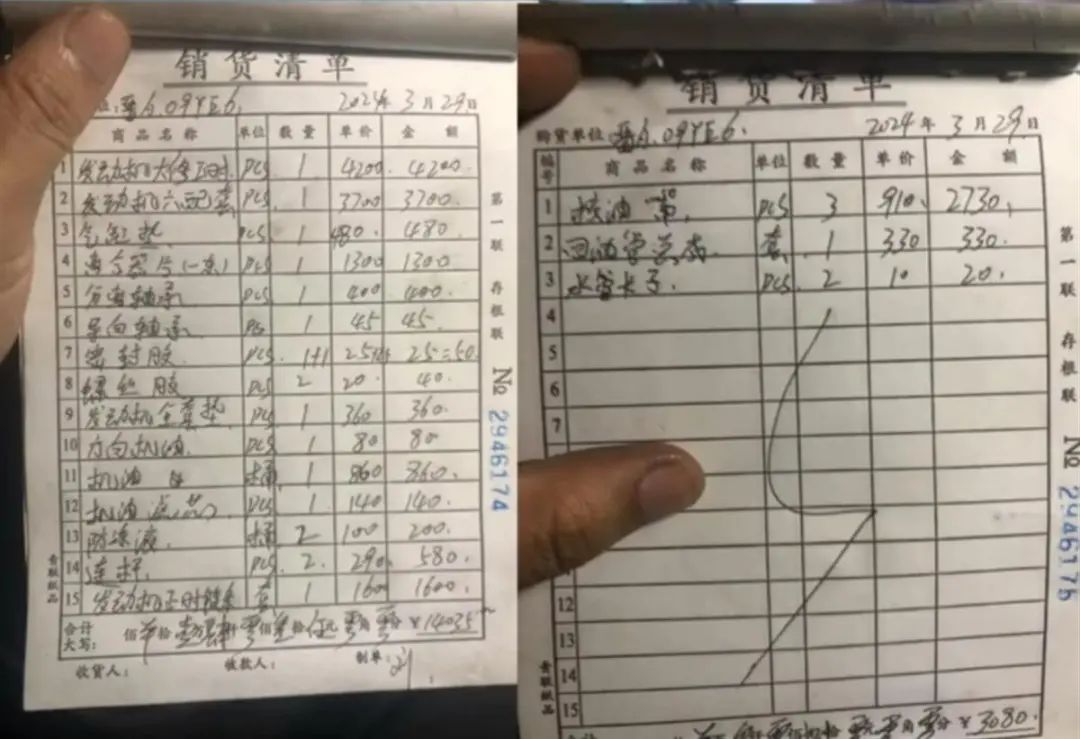 销货清单
晋A.09YE6.
2024年3月29日
商品名称 单位 数量 单价 金额
1 发动机大修工时 PCS 1 4200 4200
2 发动机六配套 PCS 1 3700 3700.
3 气缸垫 PCS 1 480 480.
4 离合器片(一套) PCS 1 1300 1300
5 分离轴承 PCS 1 400 400.
6 导向轴承 PCS 1 45 45.
7 密封胶 PCS 1+1 25 25=50.
8 螺丝胶 PCS 2 20. 40.
9 发动机全套垫 PCS 1 360 360.
10 方向机 PCS 1 80 80
11 机油 桶 1 860 860.
12 机油滤芯 PCS 1 140 140.
13 防冻液 桶 2 100 200.
14 连杆 PCS 2. 290. 580.
15 发动机正时 套 1 1600 1600.
合计
大写: 佰 拾 仟 佰 拾 元 角 分 ¥14035
收货人: 收款人: 制单:
第一联 存根联
No 2946174
销货清单
购货单位 晋A.09YE6.
2024年3月29日
编号 商品名称 单位 数量 单价 金额
1 PCS 3 910. 2730.
2 回油管总成 套 1 330 330.
3 水管卡子 PCS 2 10 20.
4
5
6
7
12
13
14
15
¥3080.
第一联 存根联
No 2946175